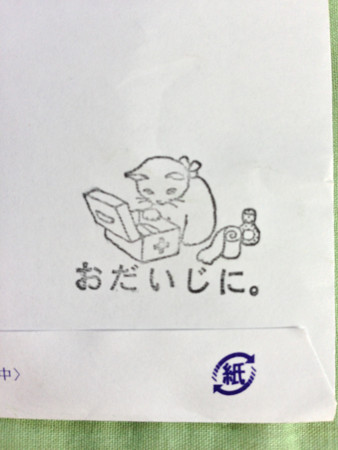 おだいじに。
中〉
紙